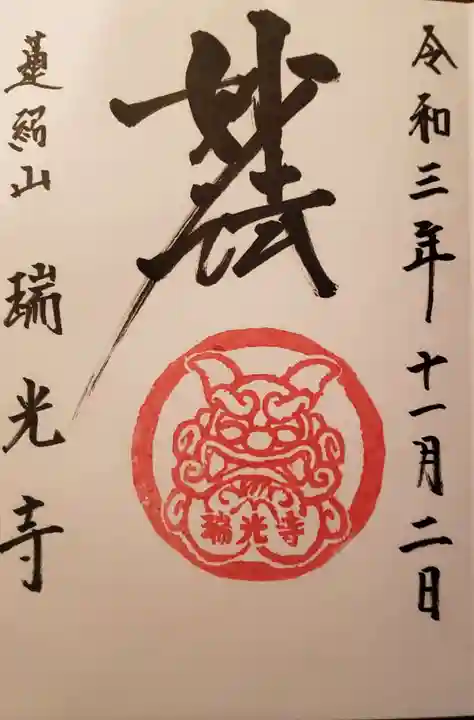 令和三年十一月二日
妙法
瑞光寺
蓮紹山 瑞光寺